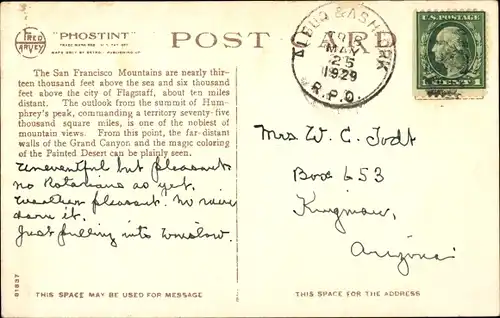 FRED HARVEY
"PHOSTINT"
POST CARD
ALBUQ & ASH FORK
MAY
25
1929
R.P.O.
U.S. POSTAGE
1 CENT 1
The San Francisco Mountains are nearly thir-
teen thousand feet above the sea and six thousand
feet above the city of Flagstaff, about ten miles
distant. The outlook from the summit of Hum-
phrey's peak, commanding a territory seventy-five
thousand square miles, is one of the noblest of
mountain views. From this point, the far-distant
walls of the Grand Canyon and the magic coloring
of the Painted Desert can be plainly seen.
Uneventful but pleasant
no Rotarians as yet.
Weather pleasant. No rain
darn it.
Just pulling into Winslow.
Mrs W. C. Todt
Box 653
Kingman,
Arizona
81837
THIS SPACE MAY BE USED FOR MESSAGE
THIS SPACE IS FOR THE ADDRESS